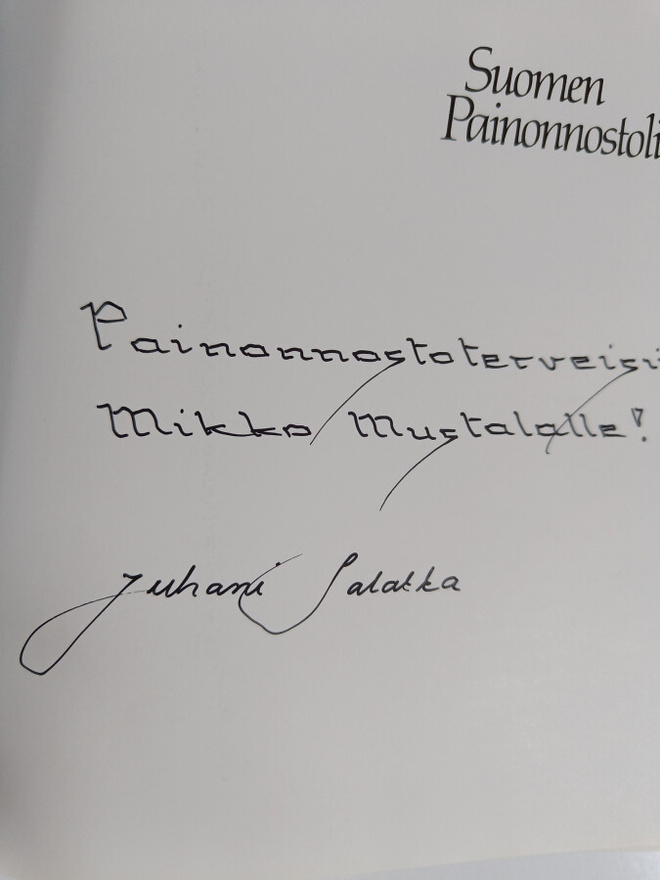 Suomen
Painonnostoli
Painonnostoterveisi
Mikko Mustalalle!
Juhani Salakka